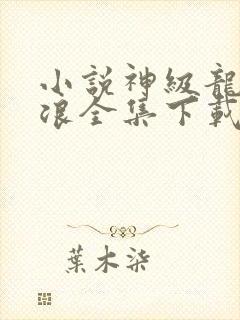 小說神級龍
浪全集下載
葉木柒